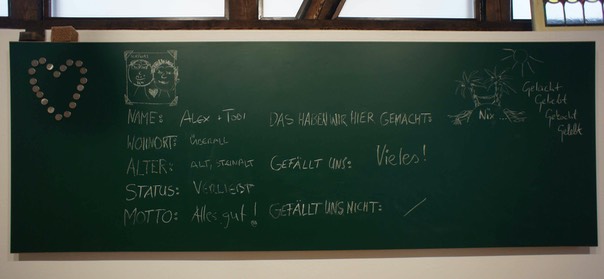 NAME: Alex + Toni
WOHNORT: ÜBERALL
ALTER: ALT, STEINALT
STATUS: VERLIEBT
MOTTO: Alles gut!
DAS HABEN WIR HIER GEMACHT:
GEFÄLLT UNS: Vieles!
GEFÄLLT UNS NICHT: /
Nix...
Gelacht
Geliebt
Gekocht